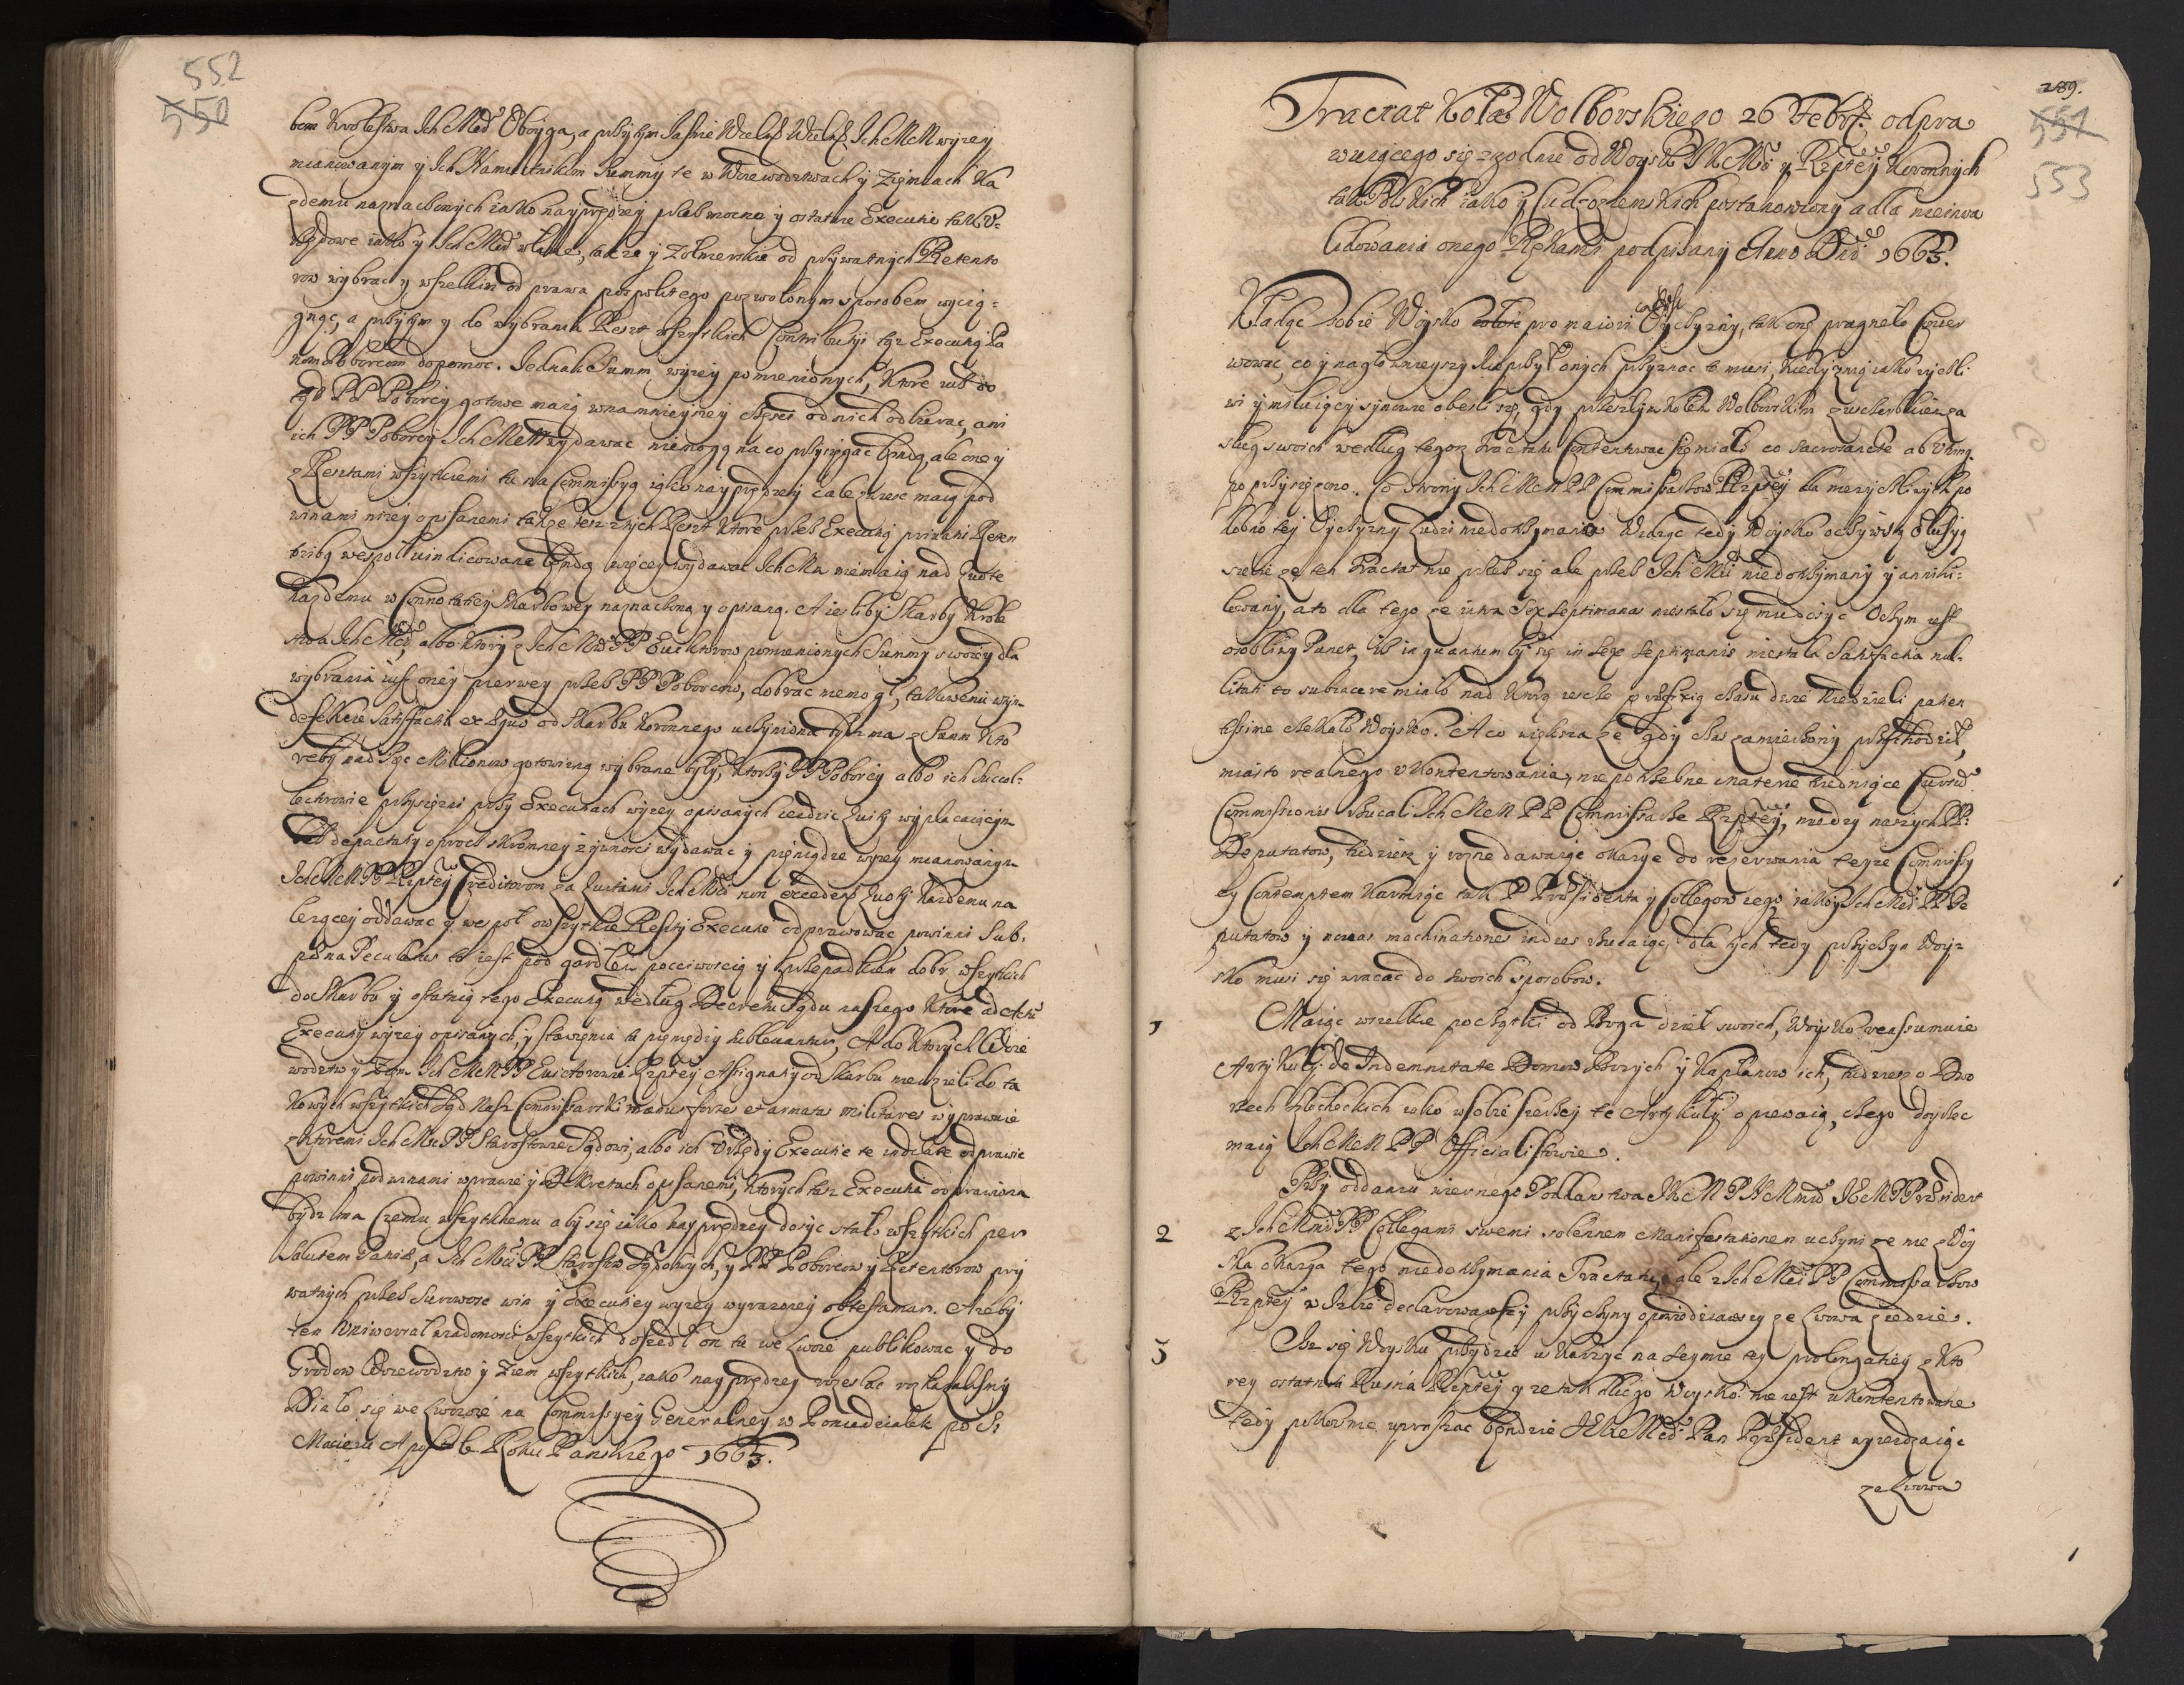 552
550
bom Krolestwa Ich Mćiow Oboyga, a przytym Jasnie Wielm: Wielm: Ich MćM wyzey
mianowanym y Ich Namiestnikom Summy te w Woiewodztwach y Ziemiach Ka
zdemu naznaczonych iako nayprędzey przez mocne y ostatnie Execucie tak V-
rzędowe iako y Ich Mćiow własne, także y Zołnierskie od prywatnych Retento
row wybrac y wszelkim od prawa pospolitego pozwolonym sposobem wycią-
gnąc, a przytym y do wybrania Reszt wszystkich Contributyi tąz Execucyą Pa
nom Poborcom dopomoc. Jednak Summ wyzey pomienionych, Ktore iuz do
tąd PP Poborcy gotowe maią w namnieyszey częsci od nich odbierac, ani
ich PP Poborcy Ich MćM wydawac niemogą na co przysięgac będą, ale one y
z Resztami wszytkiemi tu na Commissyą iako nayprędzey cale zniesc maią pod
winami nizey opisanemi także tesz z tych Reszt Ktore przez Execucyą privatis Reten
toribg wespoł uindicowane będą więcey wydawac Ich Mćm niemaią nad Quotę
Kazdemu w Connotatiey Skarbowey naznaczoną y opisaną. A iesliby Skarby Krole
stwa Ich Mćiow, albo Ktory z Ich Mćiow PP Euictorow pomienionych Summy swoiey dla
wybrania iusz oney pierwey przez PP Poborcow, dobrac niemogł, takowemu w tym
defekcie Satisfactia ex equo od Skarbu Koronnego uczyniona bydz ma z Summ Kto
reby nad Sześc Millionow gotowizną wybrane były, Ktorzy PP Poborcy albo ich Succol-
lectorowie przysięzni przy Executiach wyzey opisanych ieździc Quity wypłacaiącym
bez depactaty oprocz skromney zywnosci wydawac y pieniądze wyzey mianowanym
Ich MćM PP Rzptey Creditorom za Quitami Ich Mćiow non excedens Quoty Kazdemu na
lezącey oddawac y wespoł o wszytkie Reszty Execucie odprawowac powinni Sub
pœna Peculatus to iest pod gardłem poczciwoscią y przepadkiem dobr wszytkich
do Skarbu y ostatnią tego Execucyą według Decretu Sądu naszego Ktore ad actu
Executiy wyzey opisanych, y stawienia tu pieniędzy subleuantur, A do Ktorych Woie
wodztw y Ziem Ich MćM PP Euictorowie Rzptey Assignaty od Skarbu medzieli do ta
Kowych wszytkich Sąd Nasz Commissarski manus fortes et armatas militares wyprawuie
z Ktoremi Ich Mć PP Starostowie Sądowi, albo ich Urzędy Execucie te indilate odprawic
powinni pod winami w prawie y Dekretach opisanemi, Ktorych tesz Execucia odprawiona
bydz ma Czemu wszytkiemu aby się iako nayprędzey dosyc stało wszytkich per
Salutem Patriæ, a Ich Mć PP Starostow Sądowych, y PP Poborcow y Retentorow pry
watnych przez surowosc win y Executiey wyzey wyrazoney obtestamur. A zeby
ten Vniwersał wiadomosci wszytkich doszedł on tu we Lwowie publikowac y do
Grodow Woiewodztw y Ziem wszytkich, iako nayprędzey rozesłac rozkazalismy
Działo się we Lwowie na Commissyey Generalney w Poniedziałek po S.
Macieiu Apostole Roku Panskiego 1663.
289.
551
553
Tractat Koła Wolborskiego 26 Febry: odpra
wuiącego się zgodnie od Woyska JKMći y Rzptey Koronnych
tak Polskich iako y Cudzoziemskich postanowiony a dla nieinva
lidowania onego Rękami podpisany Anno Dni 1663.
Kładąc sobie Woysko pro maiori Oyczyzny, tak oną pragnęło Conser
wowac, co y nagłownieyszy nieprzyiaciel onych przyznac to musi, Kiedy onę iako zyczli
wi y miłuiący synowie obeszli się, gdy przeszłym Kołem Wolborskim z uscherbkiem za
sług swoich według tegoz Tractatu Contentowac się miało co sacrosancte ab vtrinq
po przysięzono. Ze strony Ich MćM PP Commissarzow Rzptey dla niezyczliwych po
dobno tey Oyczyzny Ludzi niedotrzymano Widząc tedy Woysko oczywistą Eluzyą
siebie ze ten Tractat nie przez się ale przez Ich Mći niedotrzymany y annihi-
lowany, a to dla tego ze intra Sex Septimanas niestało się mu dosyc Oczym iest
osobliwy Punct, iż in quantum by się in Sex Septimanis niestała Satisfactia nul-
litati to subiacere miało nad Ktorą iescze prefixią czasu dwie Niedzieli patien
tissime czekało Woysko. A co większa ze gdy czas zamierzony przychodził,
miasto realnego vkontentowania, niepotrzebne materie trudniące Cursu
Commissionis wrzucali Ich MćM PP Commissarze Rzptey, miedzy naszych PP:
Deputatow, tudziesz y rozne dawaiąc okazye do rozerwania teyze Commissy
ey Contemptem Karmiąc tak P Præsidenta y Collegow iego iako y Ich Mći PP De
putatow y nowas machinationes indies wrzucaiąc, dla tych tedy przyczyn Woy-
sko musi się wracac do swoich sposobow.
1 Maiąc wszelkie początki od Boga dzieł swoich, Woysko reassumuie
Artykuły de Indemnitate Domow Bozych y Kapłanow ich, tudziesz o Dwo
rzech szlacheckich iako w sobie szerzey te Artykuły opiewaią, czego doyzrec
maią Ich MćM PP Officialistowie.
2 Przy oddaniu wiernego Poddanstwa JKM P N Mmu JEM P President
z Ich Mmi PP Collegami swemi solennem Manifestationem uczyni ze nie z Woy
ska okazya tego niedotrzymania Tractatu ale z Ich Mći PP Commissarzow
Rzptey w Izbie declarowawszy przyczyny opowiedziawszy ze Lwowa ziedzie.
3 Isz się Woysku przydzie uskarzyc na Seymie tey prolongatiey z Kto
rey ostatnia Ruina Rzptey y ze tak długo Woysko nie iest ukontentowane
tedy pokornie upraszac będzie JEKoMći Pan Præsident wyiezdzaiąc
ze Lwowa